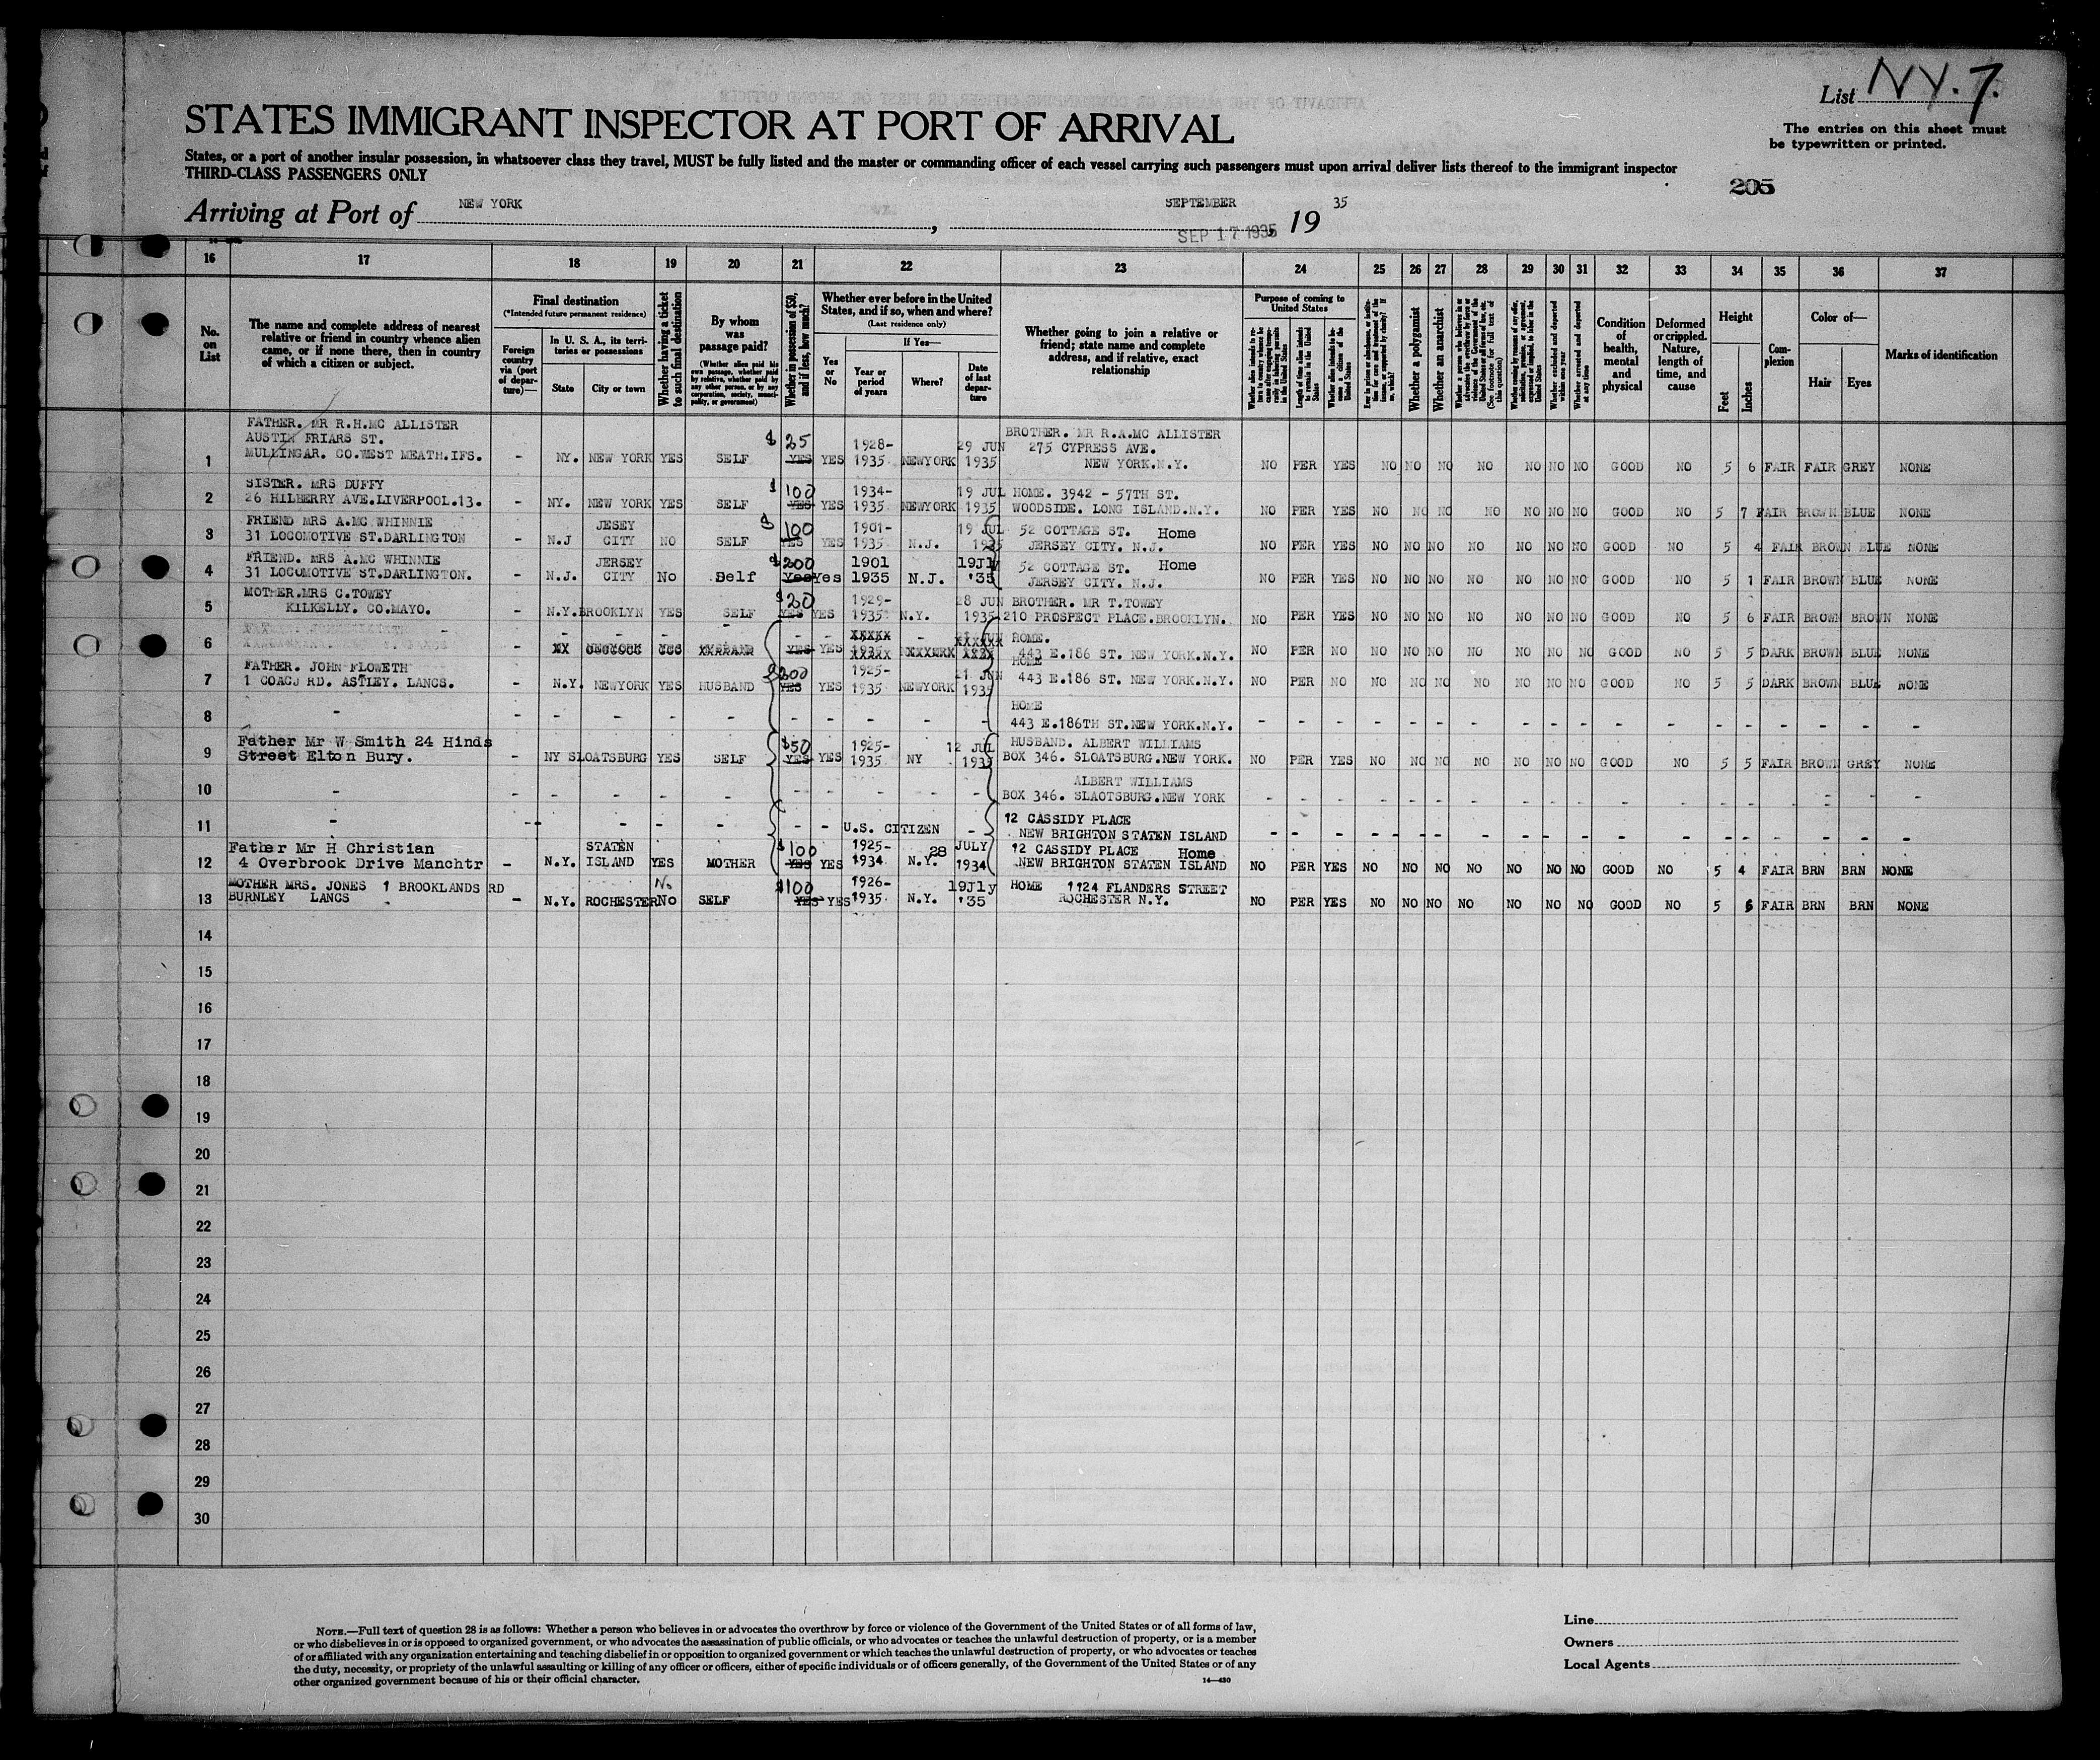 List NY. 7.
STATES IMMIGRANT INSPECTOR AT PORT OF ARRIVAL
The entries on this sheet must
be typewritten or printed.
States, or a port of another insular possession, in whatsoever class they travel, MUST be fully listed and the master or commanding officer of each vessel carrying such passengers must upon arrival deliver lists thereof to the immigrant inspector
THIRD-CLASS PASSENGERS ONLY
205
Arriving at Port of NEW YORK, SEPTEMBER 19 35
SEP 17 1935
16 17 18 19 20 21 22 23 24 25 26 27 28 29 30 31 32 33 34 35 36 37
No. on List
The name and complete address of nearest relative or friend in country whence alien came, or if none there, then in country of which a citizen or subject.
Final destination
(*Intended future permanent residence)
Foreign country via (port of departure)—
In U. S. A., its territories or possessions
State
City or town
Whether having a ticket to such final destination
By whom was passage paid?
(Whether alien paid his own passage, whether paid by relative, whether paid by any other person, or by any corporation, society, municipality, or government)
Whether in possession of $50, and if less, how much?
Whether ever before in the United States, and if so, when and where?
(Last residence only)
Yes or No
If Yes—
Year or period of years
Where?
Date of last departure
Whether going to join a relative or friend; state name and complete address, and if relative, exact relationship
Purpose of coming to United States
Whether alien intends to return to country whence he came after engaging temporarily in laboring pursuits in the United States
Length of time alien intends to remain in the United States
Whether alien intends to become a citizen of the United States
Whether a polygamist
Whether an anarchist
(See footnote for full text of this question)
Whether excluded and deported within one year
Whether arrested and deported at any time
Condition of health, mental and physical
Deformed or crippled. Nature, length of time, and cause
Height
Feet
Inches
Complexion
Color of—
Hair
Eyes
Marks of identification
FATHER. MR R.H.MC ALLISTER
AUSTIN FRIARS ST. $ 25 1928- 29 JUN BROTHER. MR R.A.MC ALLISTER
275 CYPRESS AVE.
1 MULLINGAR. CO.WEST MEATH.IFS. - NY. NEW YORK YES SELF YES YES 1935 NEWYORK 1935 NEW YORK.N.Y. NO PER YES NO NO NO NO NO NO NO GOOD NO 5 6 FAIR FAIR GREY NONE
SISTER. MRS DUFFY $ 100 1934- 19 JUL HOME. 3942 - 57TH ST.
2 26 HILBERRY AVE.LIVERPOOL.13. - NY. NEW YORK YES SELF YES YES 1935 NEWYORK 1935 WOODSIDE. LONG ISLAND.N.Y. NO PER YES NO NO NO NO NO NO NO GOOD NO 5 7 FAIR BROWN BLUE NONE
FRIEND MRS A.MC WHINNIE JESEY $ 100 1901- 19 JUL 52 COTTAGE ST. Home
3 31 LOCOMOTIVE ST.DARLINGTON - N.J CITY NO SELF YES YES 1935 N.J. 1935 JERSEY CITY. N.J. NO PER YES NO NO NO NO NO NO NO GOOD NO 5 4 FAIR BROWN BLUE NONE
FRIEND. MRS A.MC WHINNIE JERSEY $200 1901 19Jly 52 COTTAGE ST. Home
4 31 LOCOMOTIVE ST.DARLINGTON. - N.J. CITY No Self Yes Yes 1935 N.J. '35 JERSEY CITY. N.J. NO PER YES NO NO NO NO NO NO NO GOOD NO 5 1 FAIR BROWN BLUE NONE
MOTHER.MRS C.TOWEY $20 1929- 28 JUN BROTHER. MR T.TOWEY
5 KILKELLY. CO.MAYO. - N.Y. BROOKLYN YES SELF YES YES 1935 N.Y. 1935 210 PROSPECT PLACE.BROOKLYN. NO PER YES NO NO NO NO NO NO NO GOOD NO 5 6 FAIR BROWN BROWN NONE
HOME.
6 YES YES 443 E.186 ST. NEW YORK.N.Y. NO PER NO NO NO NO NO NO NO NO GOOD NO 5 5 DARK BROWN BLUE NONE
FATHER. JOHN FLOWETH $200 1925- 21 JUN HOME
7 1 COACJ RD. ASTLEY. LANCS. - N.Y. NEWYORK YES HUSBAND YES YES 1935 NEWYORK 1935 443 E.186 ST. NEW YORK.N.Y. NO PER NO NO NO NO NO NO NO NO GOOD NO 5 5 DARK BROWN BLUE NONE
HOME
8 - - - - - - - - - - - 443 E.186TH ST.NEW YORK.N.Y. - - - - - - - - - - - - - - - - - -
Father Mr W Smith 24 Hinds $50 1925- 12 JUL HUSBAND. ALBERT WILLIAMS
9 Street Elton Bury. - NY SLOATSBURG YES SELF YES YES 1935 NY 1935 BOX 346. SLOATSBURG.NEW YORK. NO PER YES NO NO NO NO NO NO NO GOOD NO 5 5 FAIR BROWN GREY NONE
ALBERT WILLIAMS
10 - - - - - - - - - - - BOX 346. SLAOTSBURG.NEW YORK - - - - - - - - - - - - - - - - - -
12 CASSIDY PLACE
11 - - - - - - - - U.S. CITIZEN - NEW BRIGHTON STATEN ISLAND - - - - - - - - - - - - - - - - - -
Father Mr H Christian STATEN $100 1925- 28 JULY 12 CASSIDY PLACE Home
12 4 Overbrook Drive Manchtr - N.Y. ISLAND YES MOTHER YES YES 1934 N.Y. 1934 NEW BRIGHTON STATEN ISLAND NO PER YES NO NO NO NO NO NO NO GOOD NO 5 4 FAIR BRN BRN NONE
MOTHER MRS. JONES 1 BROOKLANDS RD No $100 1926- 19Jly HOME 1124 FLANDERS STREET
13 BURNLEY LANCS - N.Y. ROCHESTER No SELF YES YES 1935 N.Y. '35 ROCHESTER N.Y. NO PER YES NO NO NO NO NO NO NO GOOD NO 5 FAIR BRN BRN NONE
14
15
16
17
18
19
20
21
22
23
24
25
26
27
28
29
30
NOTE.—Full text of question 28 is as follows: Whether a person who believes in or advocates the overthrow by force or violence of the Government of the United States or of all forms of law,
or who disbelieves in or is opposed to organized government, or who advocates the assassination of public officials, or who advocates or teaches the unlawful destruction of property, or is a member
of or affiliated with any organization entertaining and teaching disbelief in or opposition to organized government or which teaches the unlawful destruction of property, or who advocates or teaches
the duty, necessity, or propriety of the unlawful assaulting or killing of any officer or officers, either of specific individuals or of officers generally, of the Government of the United States or of any
other organized government because of his or their official character.
14—430
Line
Owners
Local Agents